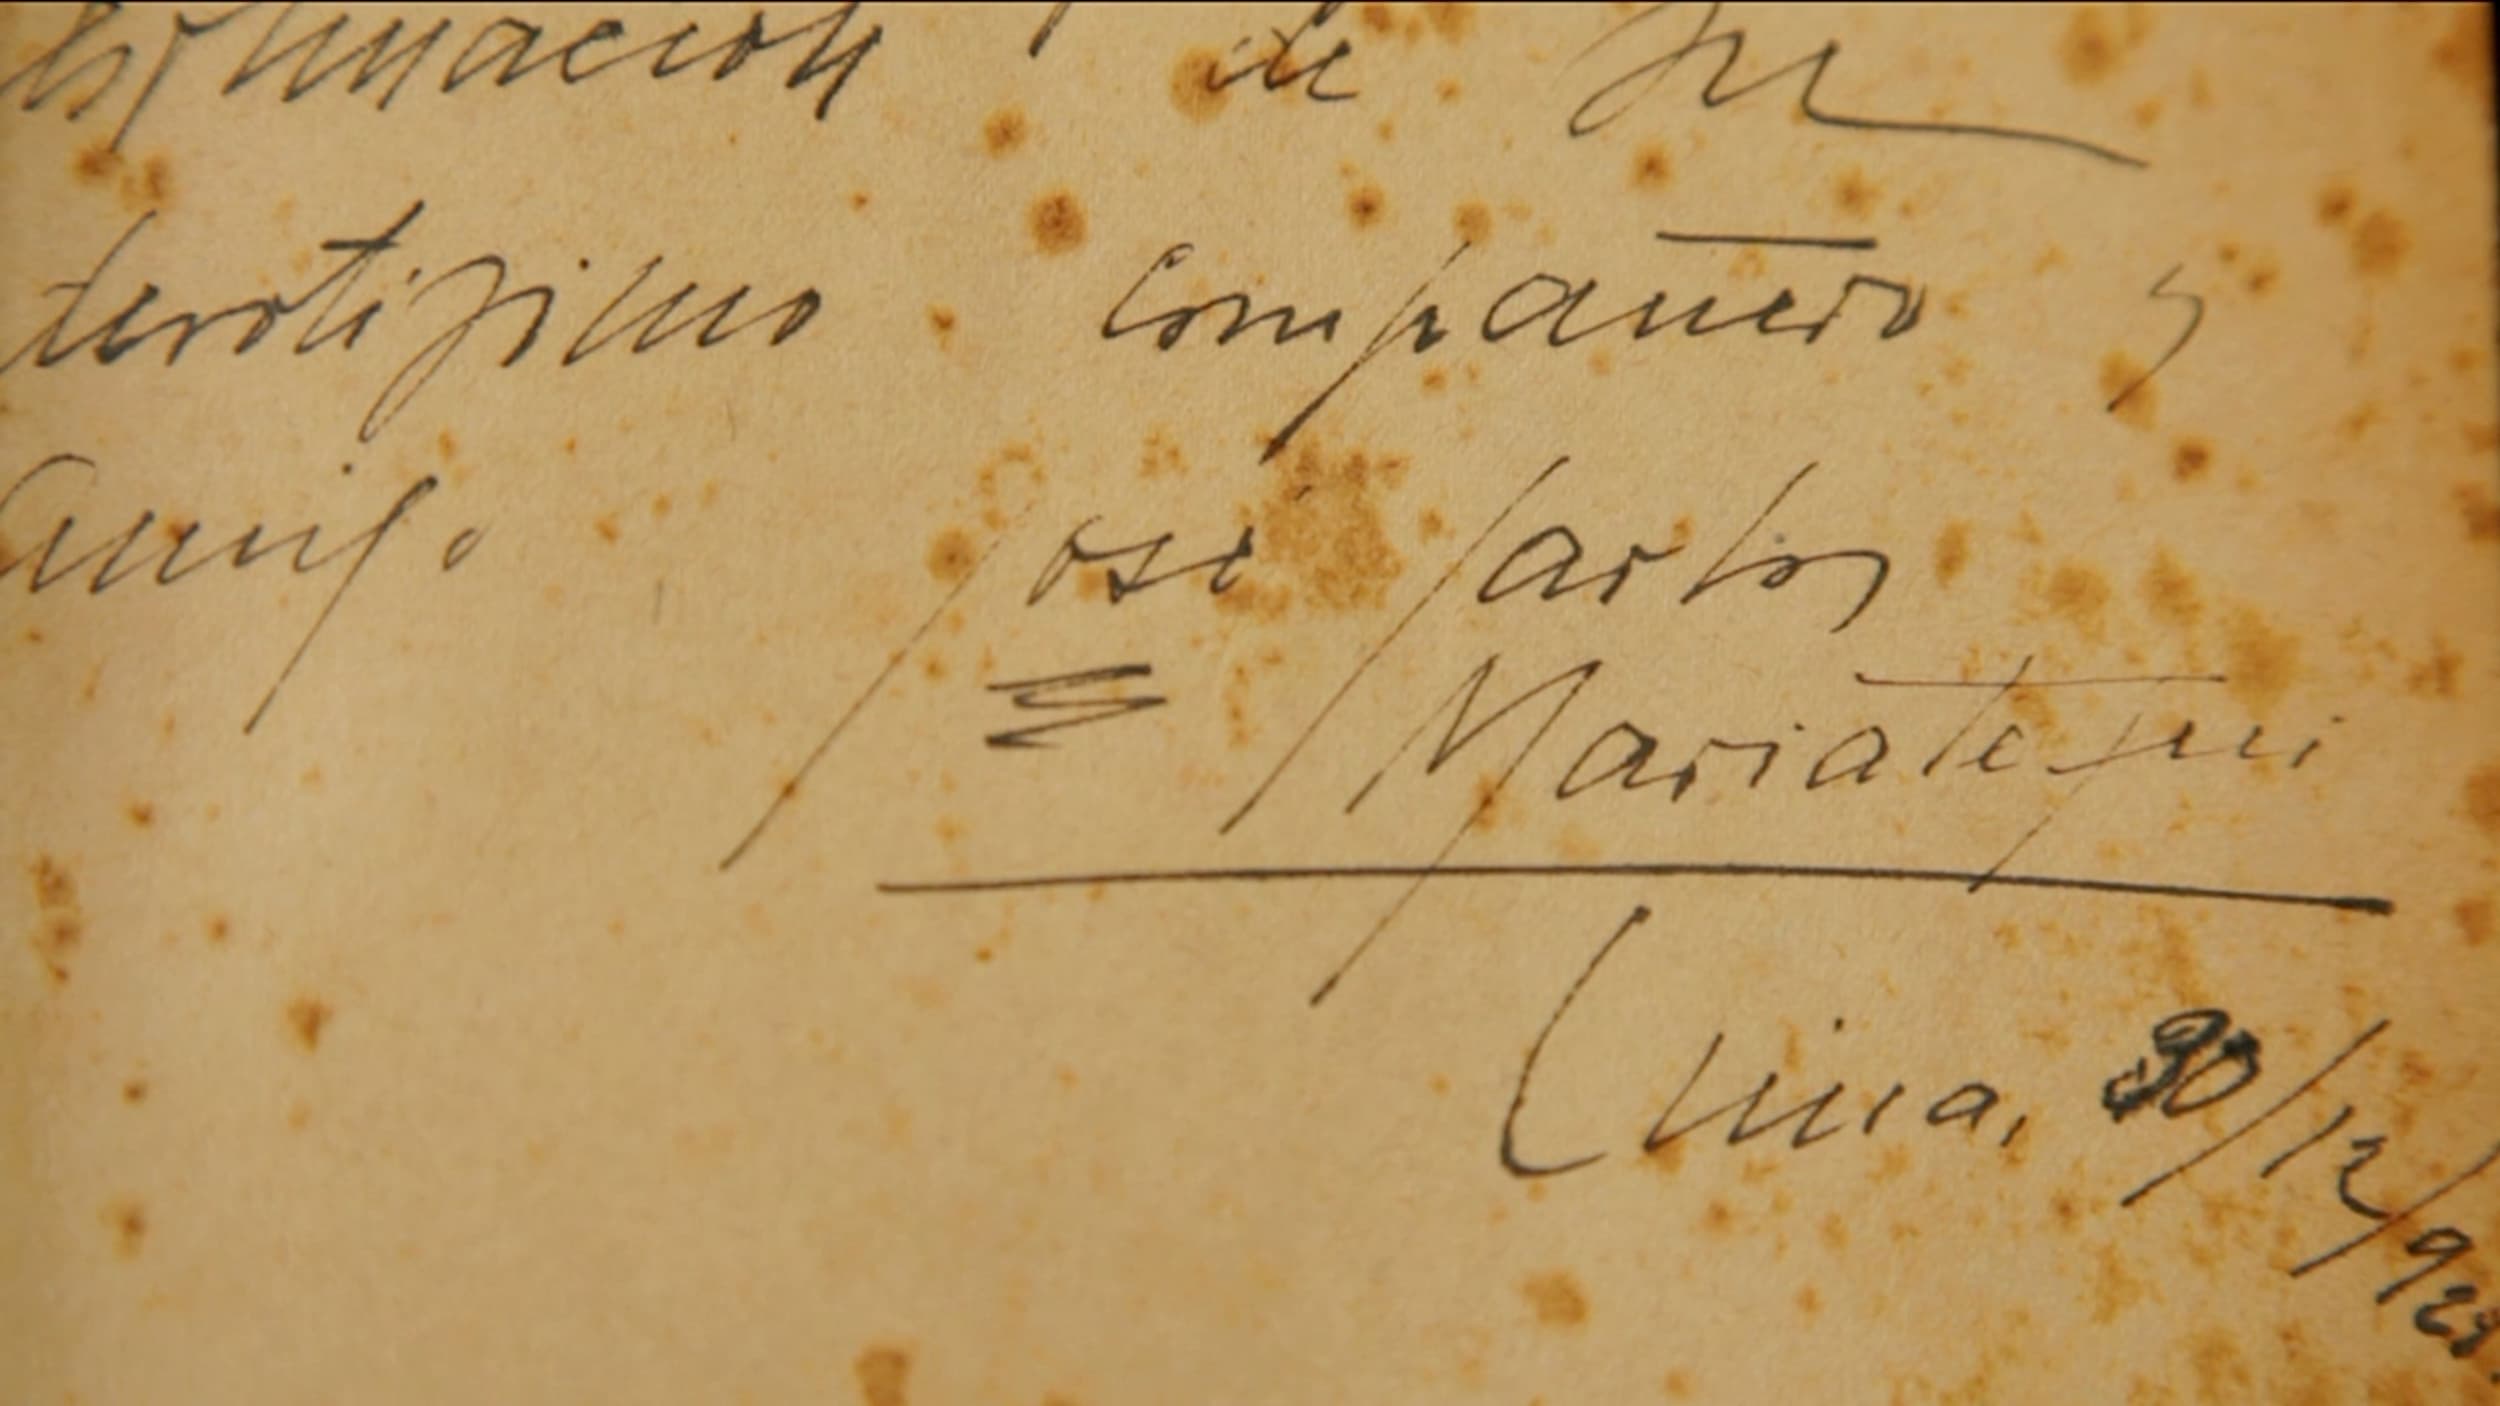 de su
devotísimo compañero y
amigo
José Carlos
Mariategui
Lima, 30/12/928.